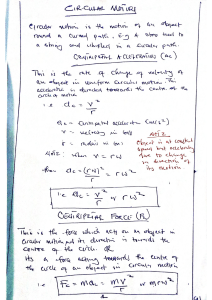 CIRCULAR MOTION
Circular motion is the motion of an object
round a curved path. E.g. A stone tied to
a string and whirled in a circular path.
CENTRIPETAL ACCELERATION (ac)
This is the rate of change of velocity of
an object in uniform circular motion. The
acceleration is directed towards the centre of the
circle of motion
i.e ac = v²/r
ac = Centripetal acceleration (m/s²)
v = velocity in m/s
r = radius in m
NOTE:
Object is at constant
speed but accelerating
due to change
in direction of
its motion
NOTE: when v = rω
then ac = (rω)²/r = rω²
i.e ac = v²/r or rω²
CENTRIPETAL FORCE (Fc)
This is the force which acts on an object in
circular motion and its direction is towards the
centre of the circle. OR
Its a force acting towards the centre of
the circle of an object in circular motion
i.e Fc = mac = mv²/r or mrω²